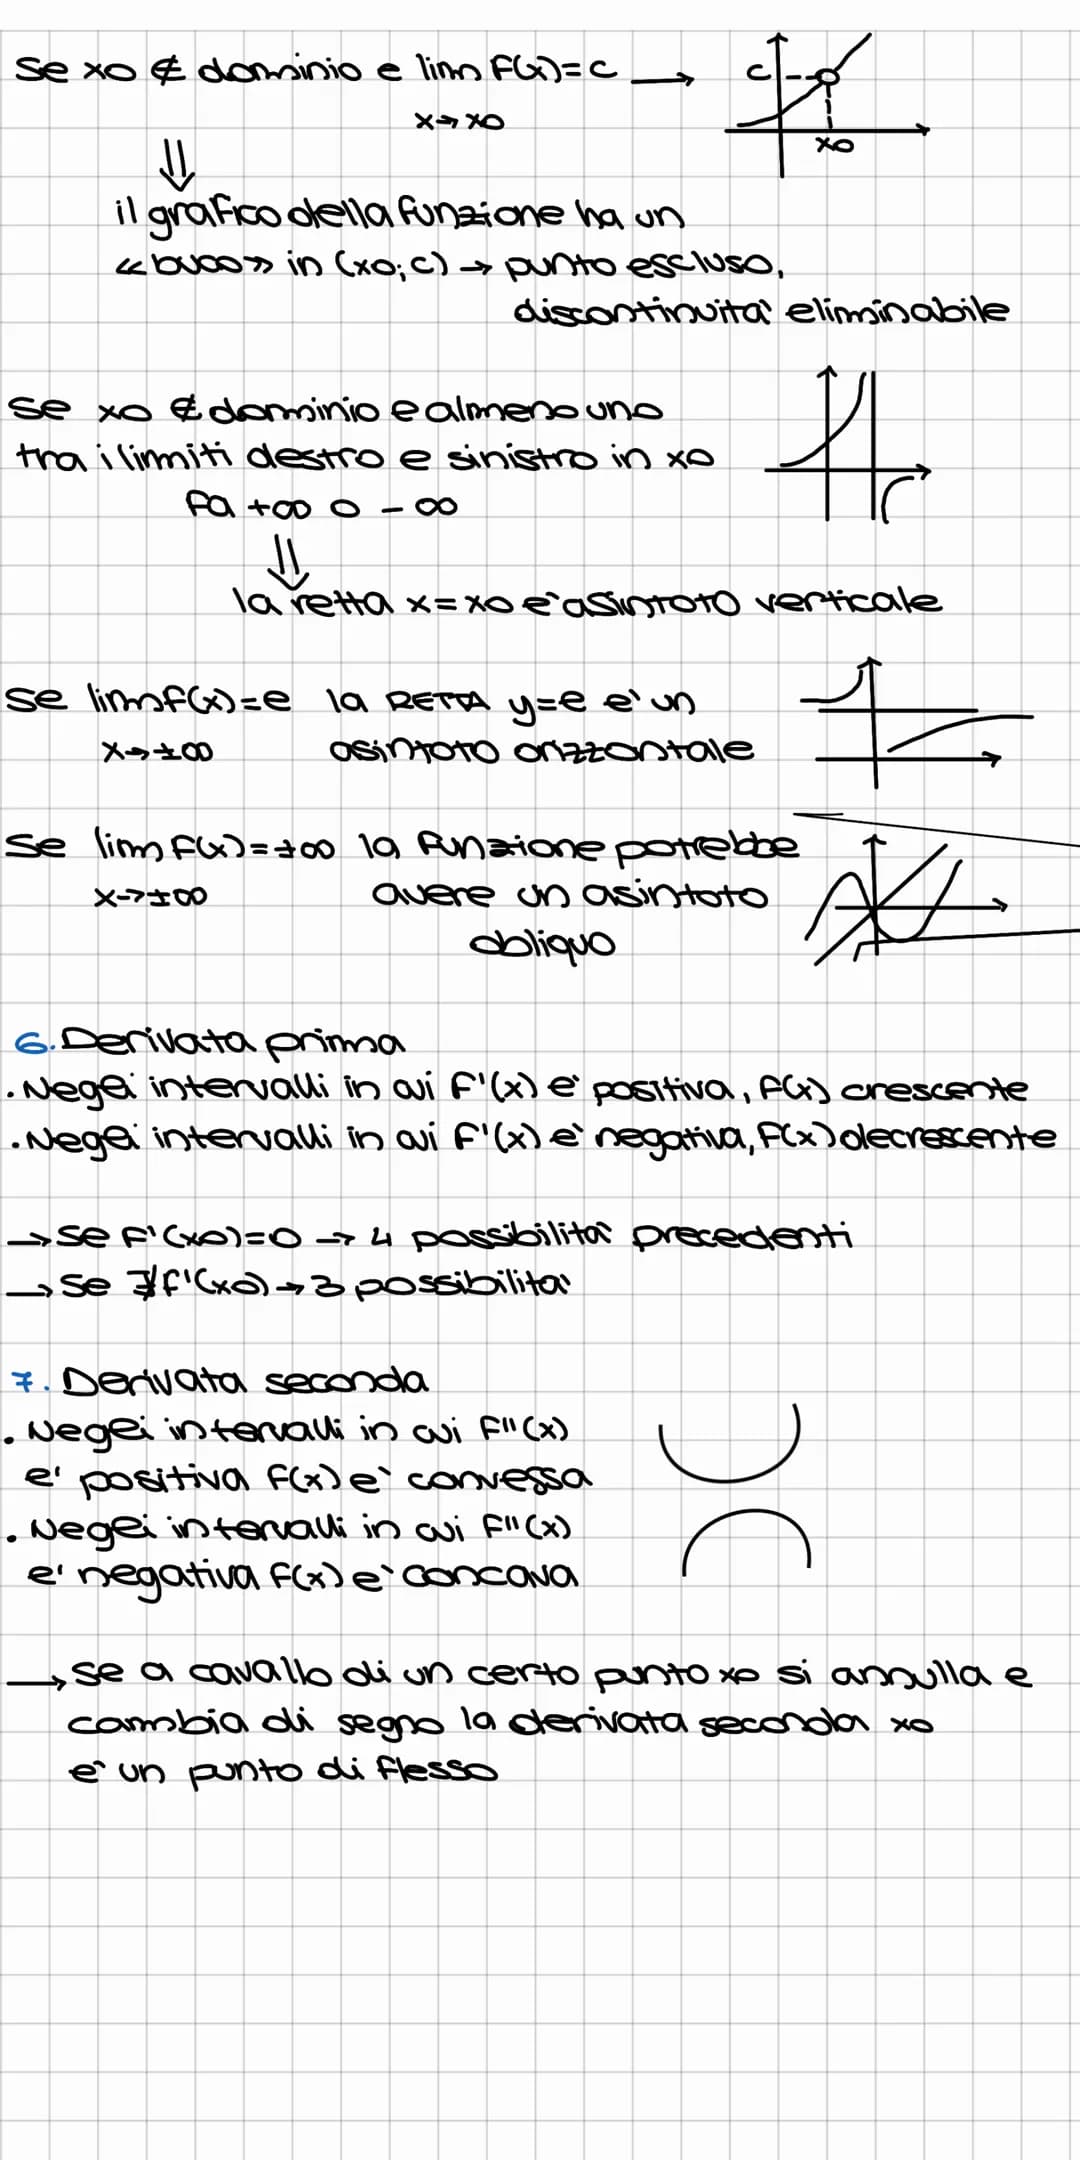 Se xo ∉ dominio e lim f(x)=c →
x→xo
c
xo
⇓
il grafico della funzione ha un
«buco» in (xo;c) → punto escluso,
discontinuità eliminabile
Se xo ∉ dominio e almeno uno
tra i limiti destro e sinistro in xo
fa +∞ o -∞
⇓
la retta x=xo è asintoto verticale
Se lim f(x)=e la RETTA y=e e' un
x→±∞ asintoto orizzontale
Se lim f(x)=±∞ la funzione potrebbe
x→±∞ avere un asintoto
obliquo
6. Derivata prima
. Negei intervalli in cui f'(x) è positiva, f(x) crescente
. Negei intervalli in cui f'(x) è negativa, f(x) decrescente
→ Se f'(xo)=0 → 4 possibilità precedenti
→ Se ∄ f'(xo) → 3 possibilità
7. Derivata seconda
. Negei intervalli in cui f''(x)
e' positiva f(x) è convessa
. Negei intervalli in cui f''(x)
e' negativa f(x) è concava
→ se a cavallo di un certo punto xo si annulla e
cambia di segno la derivata seconda xo
è un punto di flesso